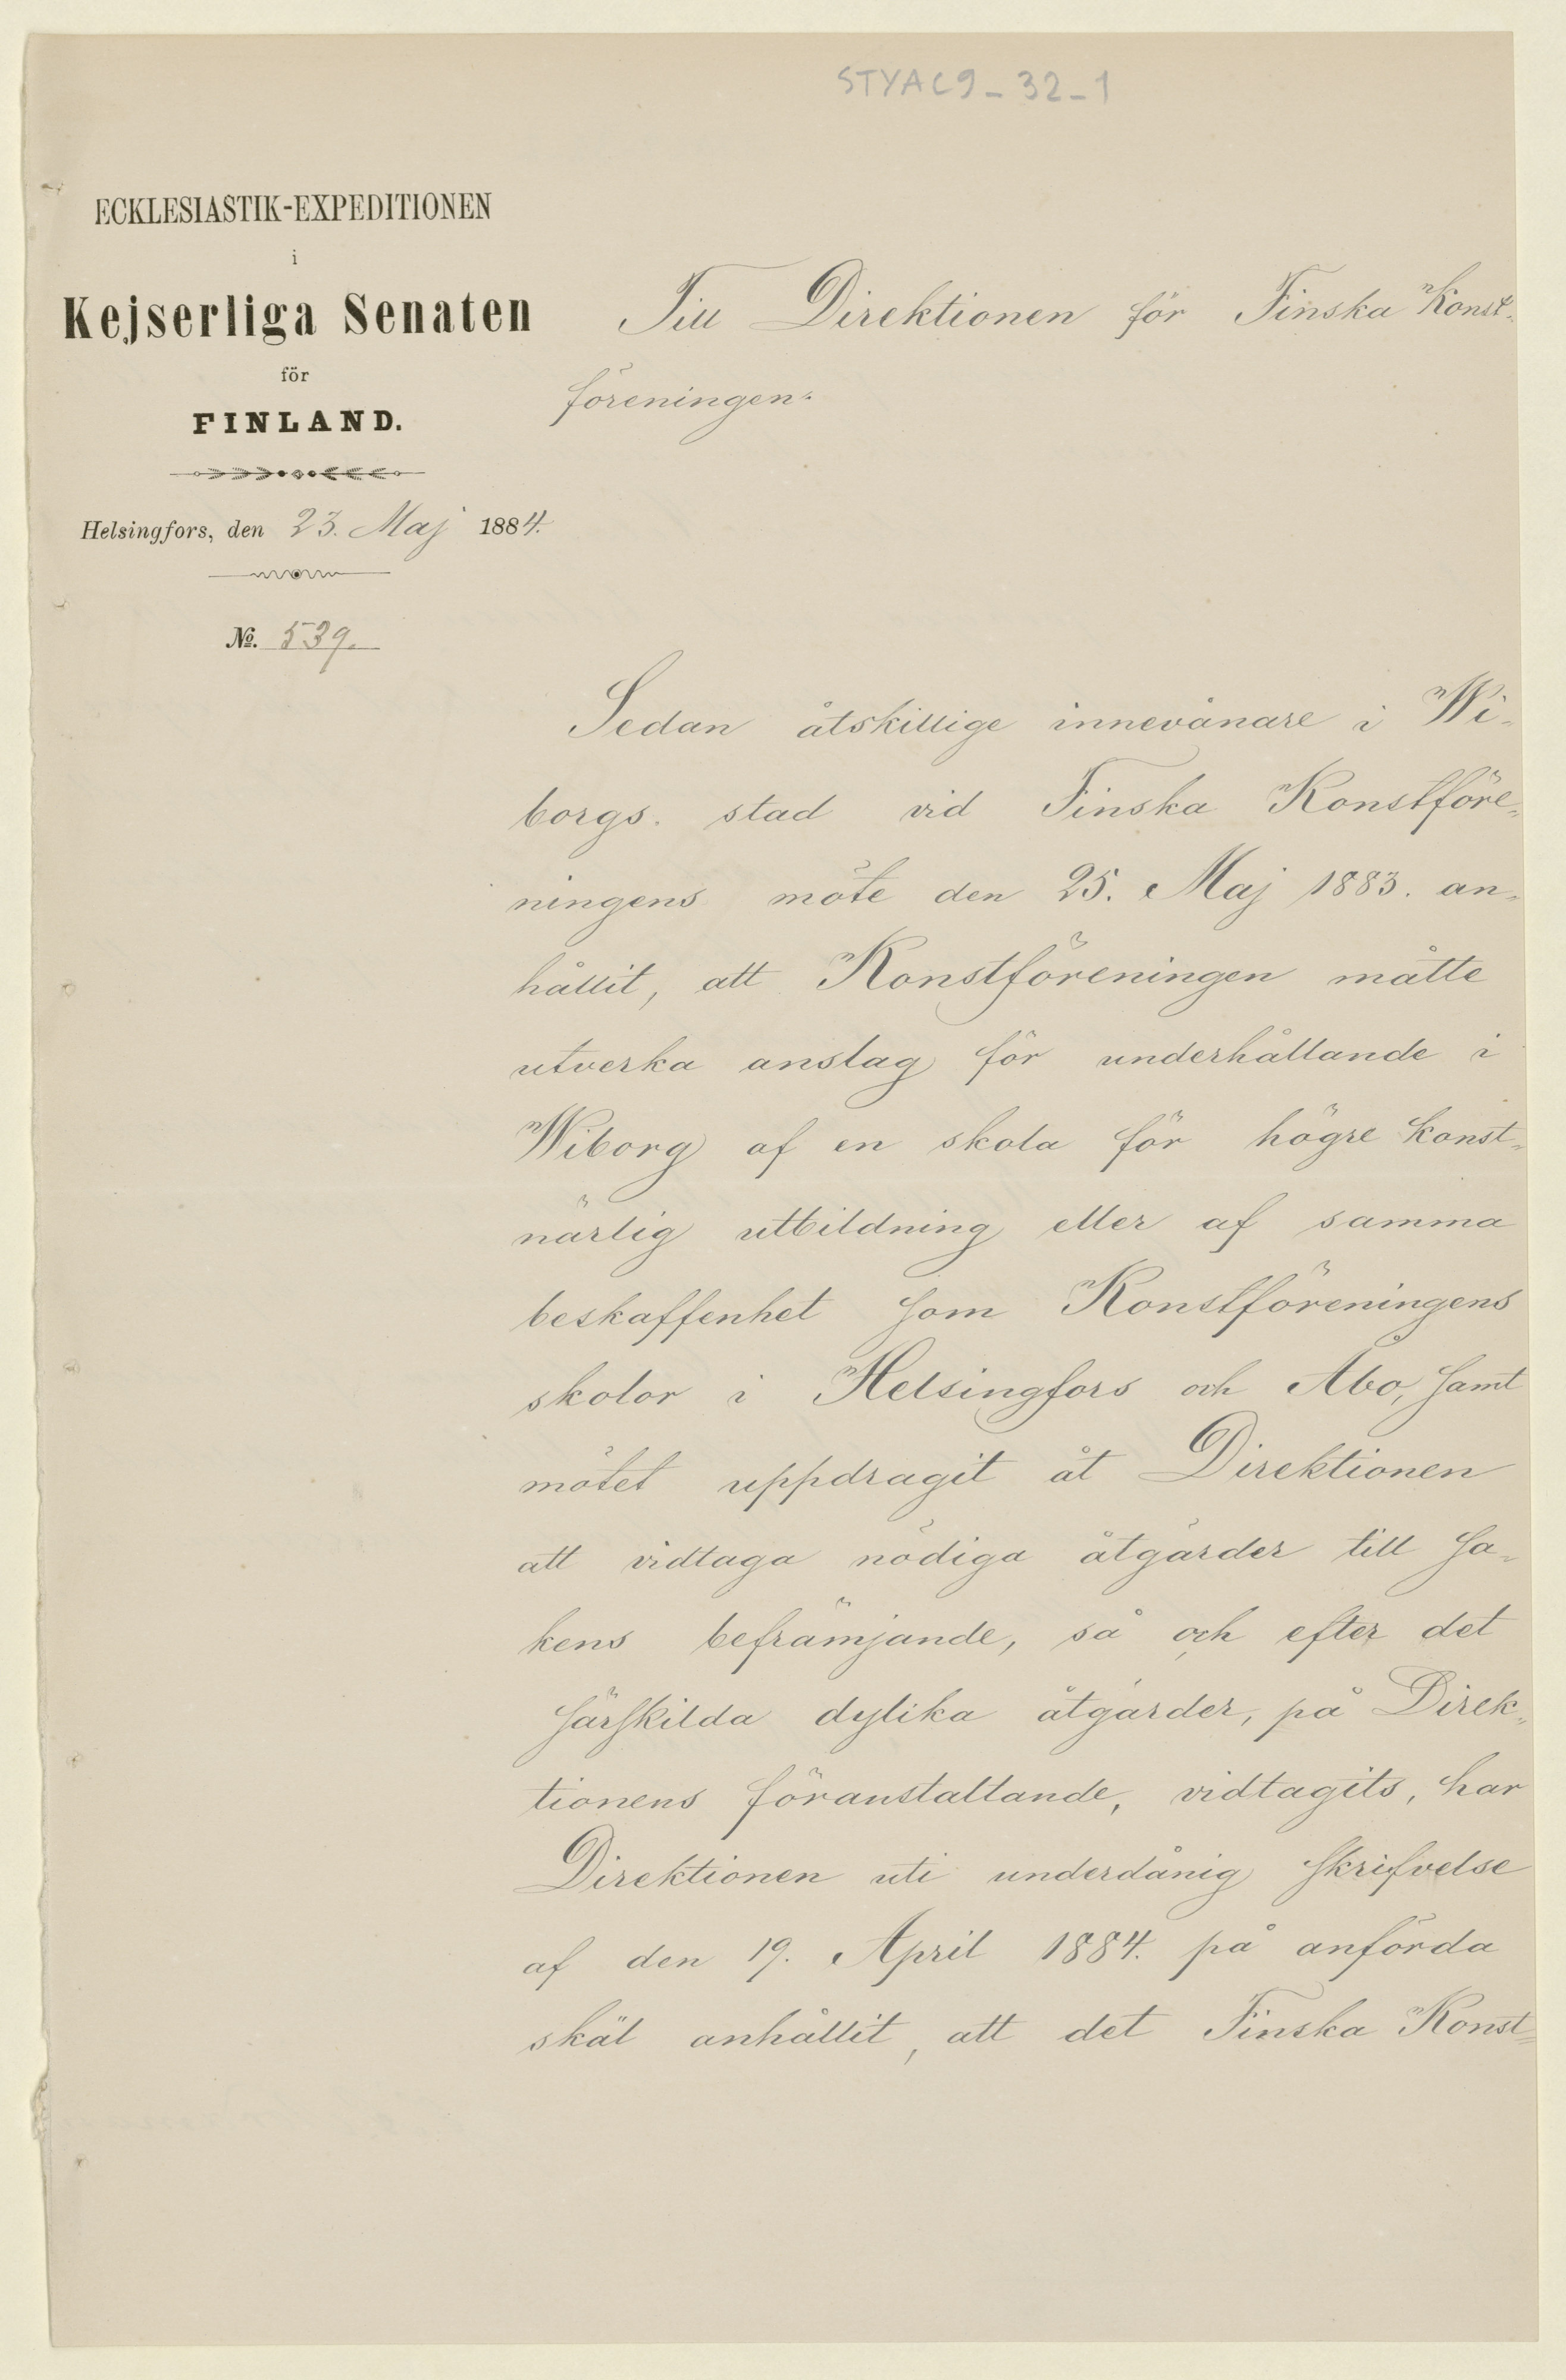 STYAC9-32-1
ECKLESIASTIK-EXPEDITIONEN
i
Kejserliga Senaten
för
FINLAND.
Helsingfors, den 23. Maj 1884.
No. 539.
Till Direktionen för Finska Konst-
föreningen.
Sedan åtskillige innevånare i Wi-
borgs stad vid Finska Konstföre-
ningens möte den 25. Maj 1883. an-
hållit, att Konstföreningen måtte
utverka anslag för underhållande i
Wiborg af en skola för högre konst-
närlig utbildning eller af samma
beskaffenhet som Konstföreningens
skolor i Helsingfors och Åbo, samt
mötet uppdragit åt Direktionen
att vidtaga nödiga åtgärder till sa-
kens befrämjande, så och efter det
särskilda dylika åtgärder, på Direk-
tionens föranstaltande, vidtagits, har
Direktionen uti underdånig skrifvelse
af den 19. April 1884. på anförda
skäl anhållit, att det Finska Konst-